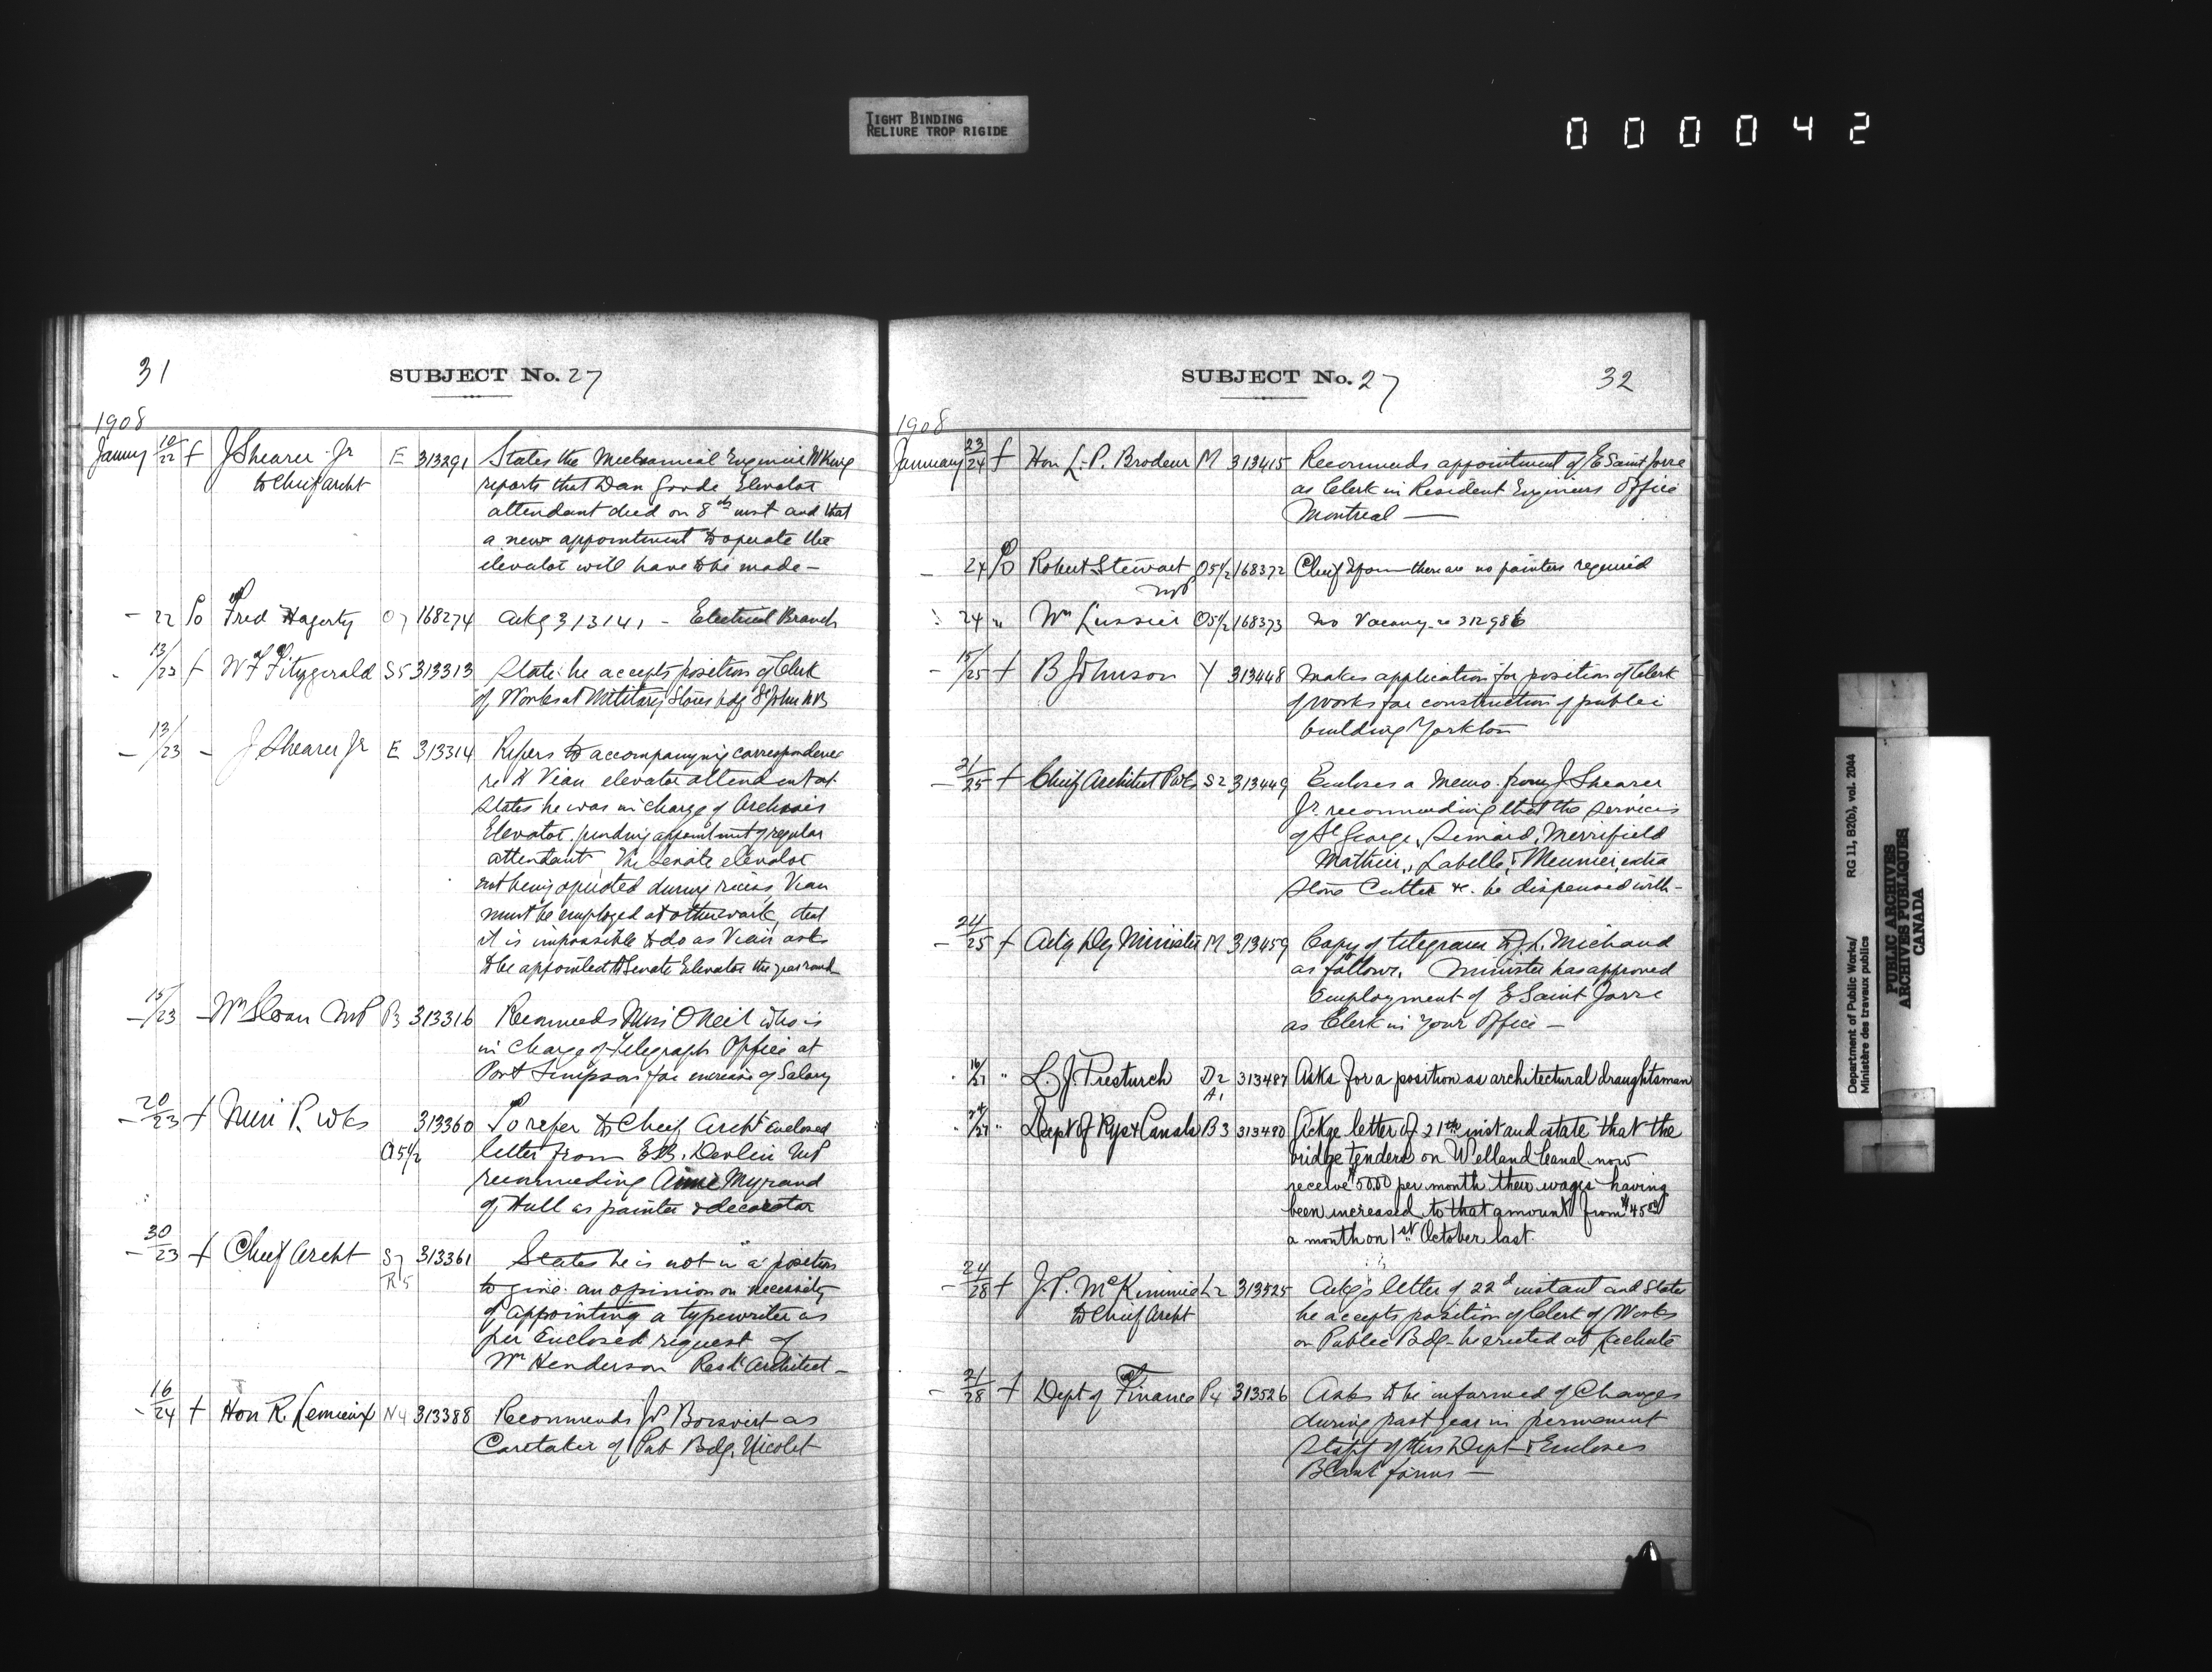 TIGHT BINDING
RELIURE TROP RIGIDE
000042
31
SUBJECT No. 27
1908
Januy 10/22 f J Shearer Jr E 313291 States the Mechanical Engineer W King
to Chief Archt reports that Dan Goode Elevator
attendant died on 8th inst and that
a new appointment to operate the
elevator will have to be made -
- 22 To Fred Hagerty O7 168274 Ackg 313141 - Electrical Branch
- 13/23 f W F Fitzgerald S5 313313 States he accepts position of Clerk
of Works at Military Stores bdg St John NB
- 13/23 - J Shearer Jr E 313314 Refers to accompanying correspondence
re A Vian elevator attendant
States he was in charge of Archives
Elevator pending appointment of regular
attendant. The Senate elevator
not being operated during recess, Vian
must be employed at other work, that
it is impossible to do as Vian asks
to be appointed to Senate Elevator the year round
- 15/23 - Wm Sloan MP B3 313316 Recommends Miss O'Neil who is
in charge of Telegraph Office at
Port Simpson for increase of Salary
- 20/23 f Min P. Wks 313360 To refer to Chief Archt enclosed
O5 1/2 letter from E.B. Devlin MP
recommending Aimé Myrand
of Hull as painter & decorator
- 30/23 f Chief Archt S7 313361 States he is not in a position
R5 to give an opinion on necessity
of appointing a typewriter as
per Enclosed request of
Wm Henderson Resdt Architect -
- 16/24 f Hon R. Lemieux N4 313388 Recommends J P Boisvert as
Caretaker of Pub Bdg. Nicolet
SUBJECT No. 27
32
1908
January 23/24 f Hon L. P. Brodeur M 313415 Recommends appointment of E Saint Jorre
as Clerk in Resident Engineers Office
Montreal -
- 24 To Robert Stewart O5 1/2 168372 Chief there are no painters required
MP
24 " Wm Lussier O5 1/2 168373 No Vacancy re 312986
- 15/25 f B Johnson Y 313448 Makes application for position of Clerk
of works for construction of public
building Yorkton
- 21/25 f Chief Architect P Wks S2 313449 Encloses a Memo. from J Shearer
Jr. recommending that the services
of St George, Simard, Merrifield
Mathieu, Labelle, & Meunier, extra
Stone Cutter &c. be dispensed with -
- 24/25 f Actg Dy Minister M 313459 Copy of telegram to J. L. Michaud
as follows. Minister has approved
Employment of E Saint Jorre
as Clerk in Your Office -
16/27 " L. J. Tresturch D2 313487 Asks for a position as architectural draughtsman
A1
24/27 " Dept of Rys & Canals B3 313480 Ackge letter of 21st inst and state that the
bridge tenders on Welland Canal now
receive $50.00 per month their wages having
been increased to that amount from $45.00
a month on 1st October last.
- 24/28 f J. P. McKimmie L2 313525 Ackgs letter of 22d instant and States
to Chief Archt he accepts position of Clerk of Works
on Public Bdg - be erected at Lachute
- 21/28 f Dept of Finance P4 313526 Asks to be informed of Changes
during past year in permanent
Staff of this Dept & Encloses
Blank forms -
Department of Public Works/ RG 11, B2(b), vol. 2044
Ministère des travaux publics
PUBLIC ARCHIVES
ARCHIVES PUBLIQUES
CANADA